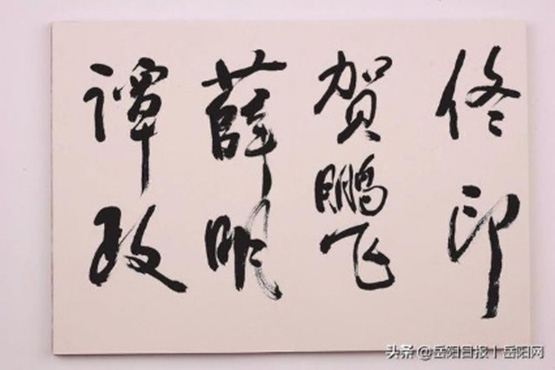 佟印
贺鹏飞
薛明
谭政
头条 @岳阳日报丨岳阳网